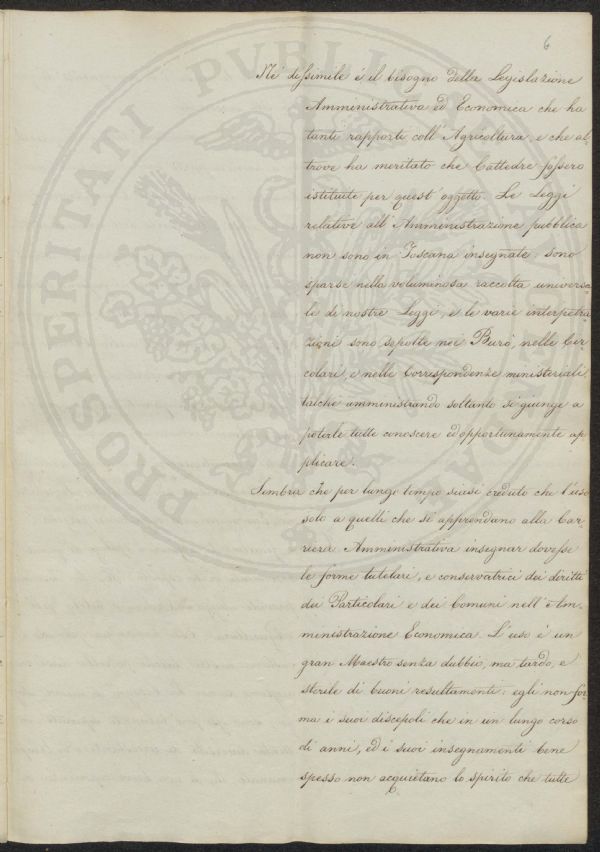 6
Nè dissimile è il bisogno della Legislazione
Amministrativa ed Economica che ha
tanti rapporti coll'Agricoltura, e che al-
trove ha meritato che Cattedre fossero
istituite per quest'oggetto. Le Leggi
relative all'Amministrazione pubblica
non sono in Toscana insegnate; sono
sparse nella voluminosa raccolta universa
le di nostre Leggi, e le varie interpetra
zioni sono sepolte nei Burò, nelle Cir
colari, e nelle Corrispondenze ministeriali,
talchè amministrando soltanto si giunge a
poterle tutte conoscere ed opportunamente ap
plicare.
Sembra che per lungo tempo siasi creduto che l'uso
solo a quelli che si apprendano alla Car-
riera Amministrativa insegnar dovesse
le forme tutelari, e conservatrici dei diritti
dei Particolari e dei Comuni nell'Am-
ministrazione Economica. L'uso è un
gran Maestro senza dubbio, ma tardo, e
sterile di buoni resultamenti: egli non for
ma i suoi discepoli che in un lungo corso
di anni, ed i suoi insegnamenti bene
spesso non acquietano lo spirito che tutte
PROSPERITATI PVBLICAE